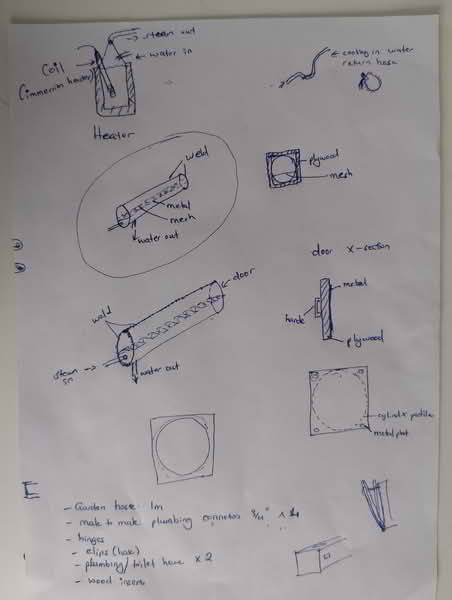 steam out
water in
Coil
(immersion heater)
Heater
cooling in water
return hose
weld
metal
mesh
water out
plywood
mesh
door x-section
metal
plywood
door
weld
steam
in
water out
cylinder profile
metal plate
E
- Garden hose 1m
- male to male plumbing connetor 3/4"
- hinges
- clips (hose)
- plumbing/toilet hose x 2
- wood inserts